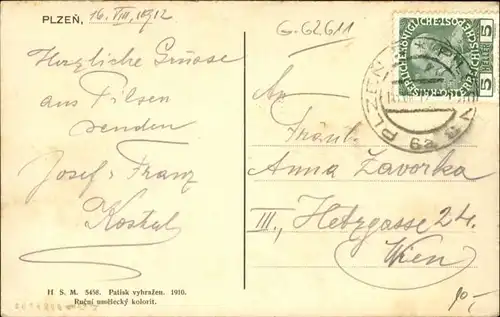 PLZEŇ, 16. VIII. 1912
G.62611
Herzliche Grüsse
aus Pilsen
senden
Josef Franz
An
Fräul.
Anna Zavorka
III., Hetzgasse 24.
Wien
PLZEŇ
6a
5 HELLER 5
H S M. 5458. Patisk vyhražen. 1910.
Ruční umělecký kolorit.
90,-